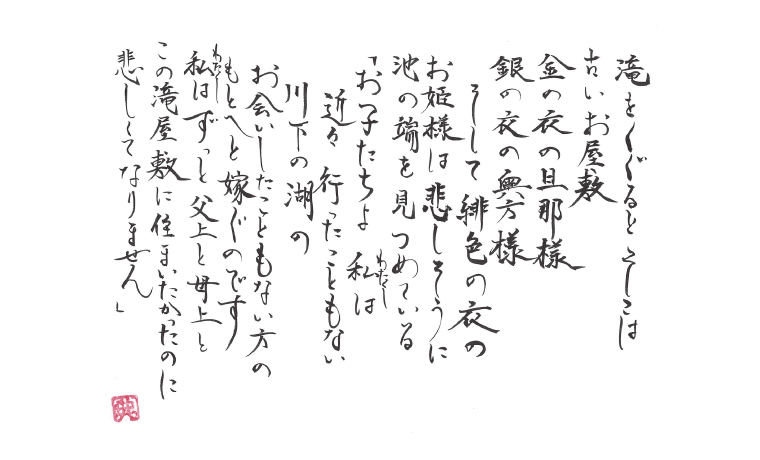 滝をくぐるとそこは
古いお屋敷
金の衣の旦那様
銀の衣の奥方様
そして緋色の衣の
お姫様は悲しそうに
池の端を見つめている
「お子たちよ 私は
わたくし
近々 行ったこともない
川下の湖の
お会いしたこともない方の
もとへと嫁ぐのです
私はずっと父上と母上と
わたくし
この滝屋敷に住まいたかったのに
悲しくてなりません」